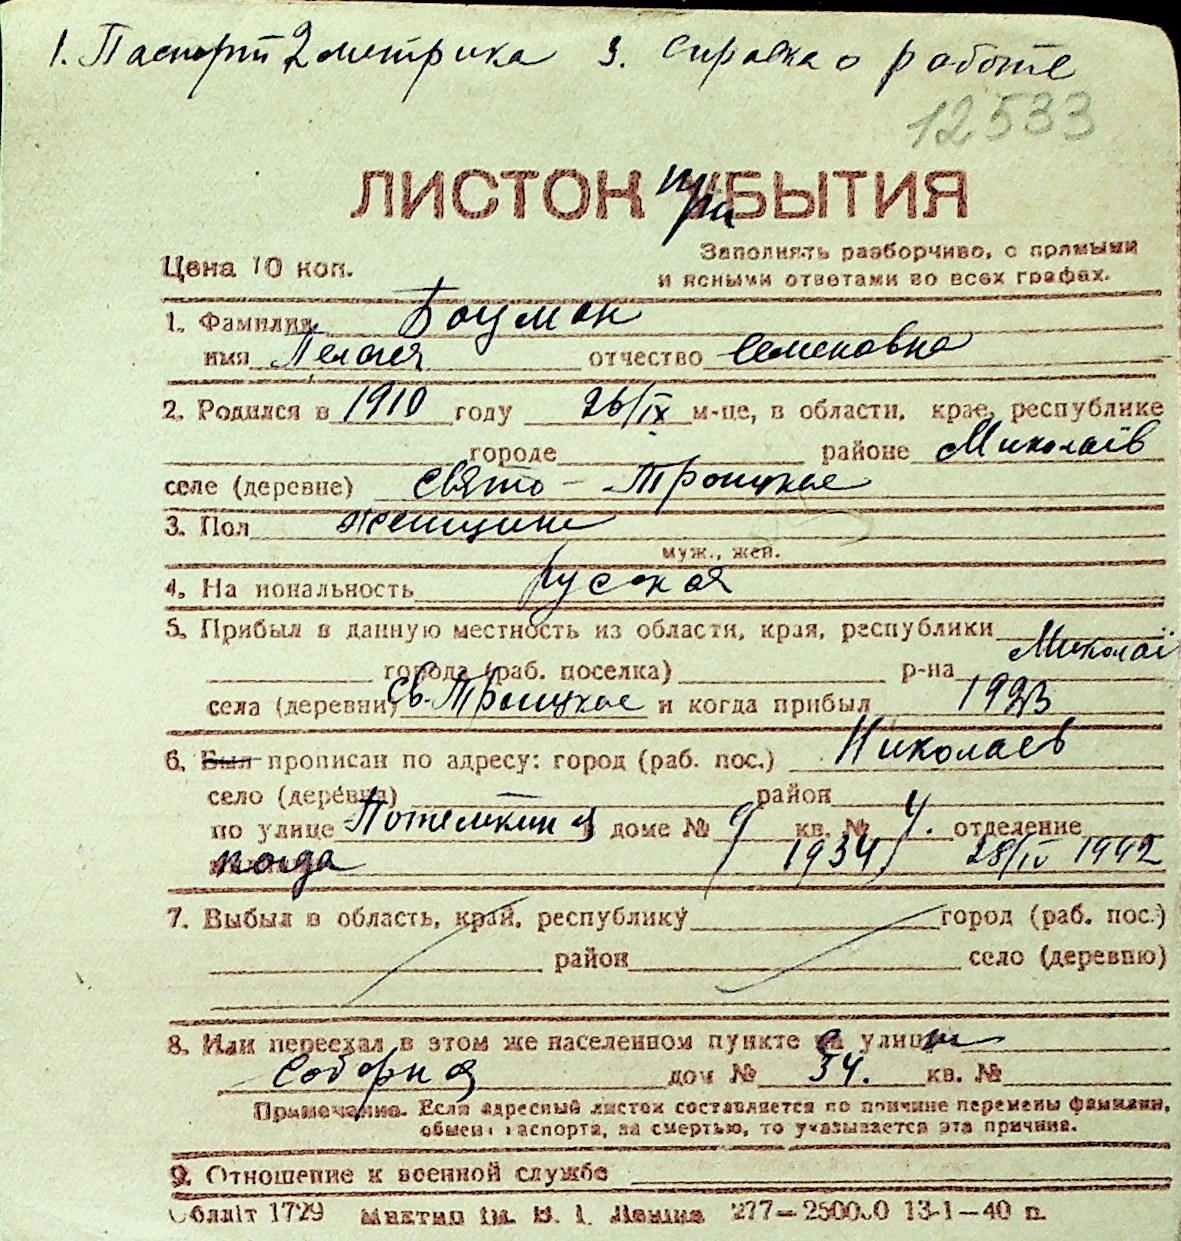 1. Паспорт 2 метрика 3. Справка о работе
12533
ЛИСТОК ПРИБЫТИЯ
Цена 10 коп.
Заполнять разборчиво, с прямыми
и ясными ответами во всех графах.
1. Фамилия Боцман
имя Пелагея отчество Семеновна
2. Родился в 1910 году 26/IX м-це, в области, крае, республике
городе районе Миколаїв
селе (деревне) Свято-Троицкое
3. Пол женщина
муж., жен.
4. Национальность русская
5. Прибыл в данную местность из области, края, республики
города (раб. поселка) р-на Миколаї
села (деревни) Св-Троицкое и когда прибыл 1923
6. Был прописан по адресу: город (раб. пос.) Николаев
село (деревня) район
по улице Потемкин я доме № 9 кв. № 4. отделение
когда 1934 28/IV 1942
7. Выбыл в область, край, республику город (раб. пос.)
район село (деревню)
8. Или переехал в этом же населенном пункте с улицы
Соборная дом № 34. кв. №
Примечание. Если адресный листок составляется по причине перемены фамилии,
обмен паспорта, за смертью, то указывается эта причина.
9. Отношение к военной службе
Обллiт 1729 Миктип iм. В. I. Ленiна 277—250000 13-1—40 п.